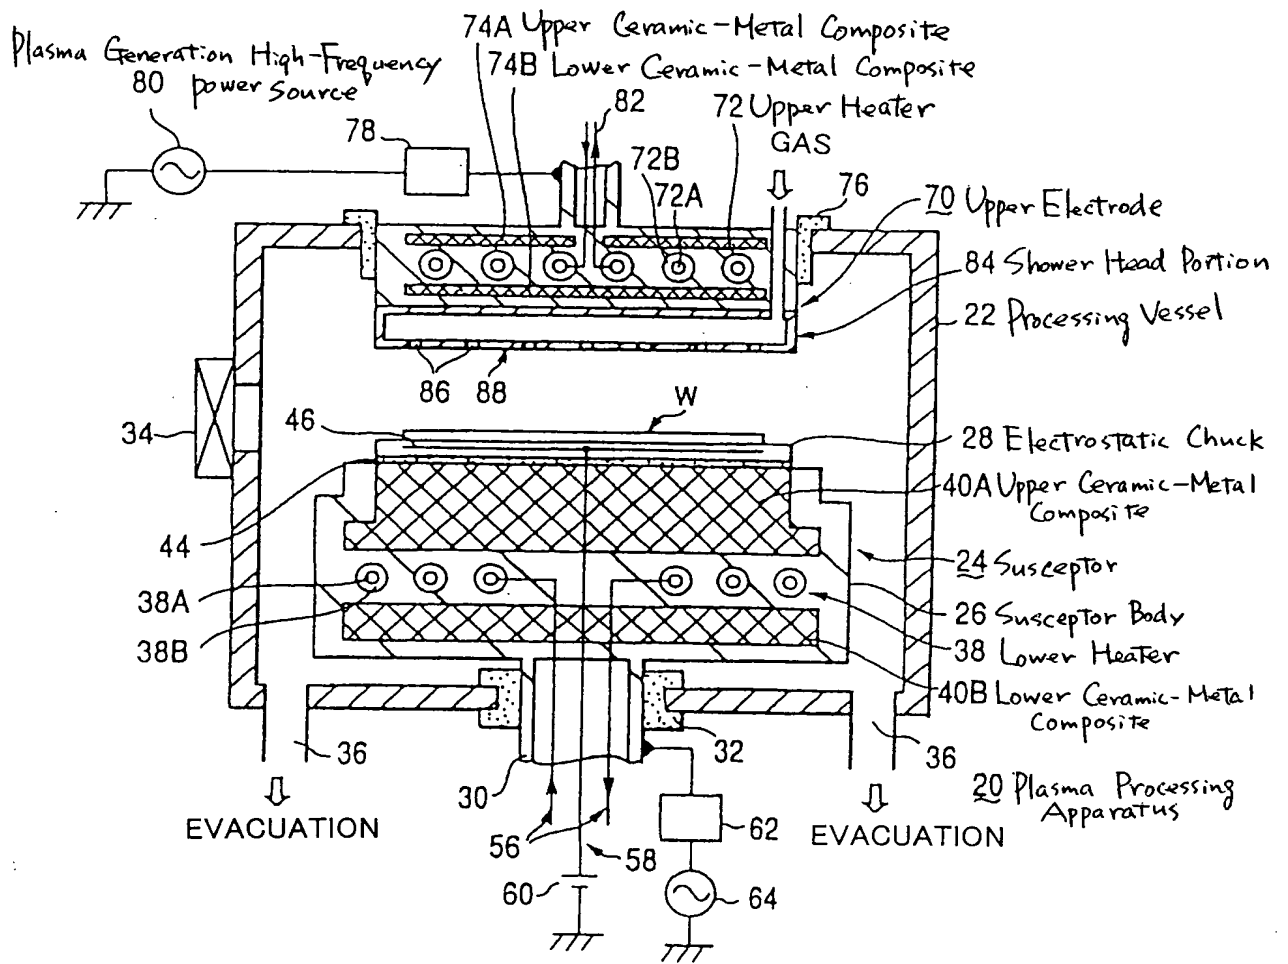 74A Upper Ceramic-Metal Composite
Plasma Generation High-Frequency
power source
74B Lower Ceramic-Metal Composite
80
82
72 Upper Heater
78
GAS
72B
72A
76
70 Upper Electrode
84 Shower Head Portion
22 Processing Vessel
86
88
W
46
34
28 Electrostatic Chuck
40A Upper Ceramic-Metal
Composite
44
24 Susceptor
38A
26 Susceptor Body
38B
38 Lower Heater
40B Lower Ceramic-Metal
Composite
36
32
36
30
20 Plasma Processing
Apparatus
EVACUATION
56
58
62
EVACUATION
60
64